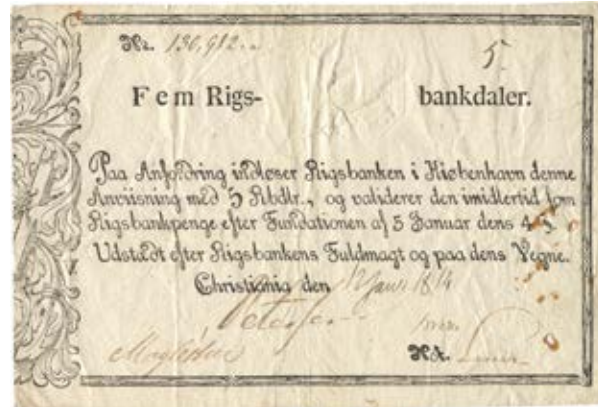 No. 136,982
5.
Fem Rigs- bankdaler.
Paa Anfordring indløser Rigsbanken i Kiøbenhavn denne
Anviisning med 5 Rbdlr., og validerer den imidlertid som
Rigsbankpenge efter Fundationen af 5 Januar dens 4 §.
Udstædt efter Rigsbankens Fuldmagt og paa dens Vegne.
Christiania den 12 Janr. 1814